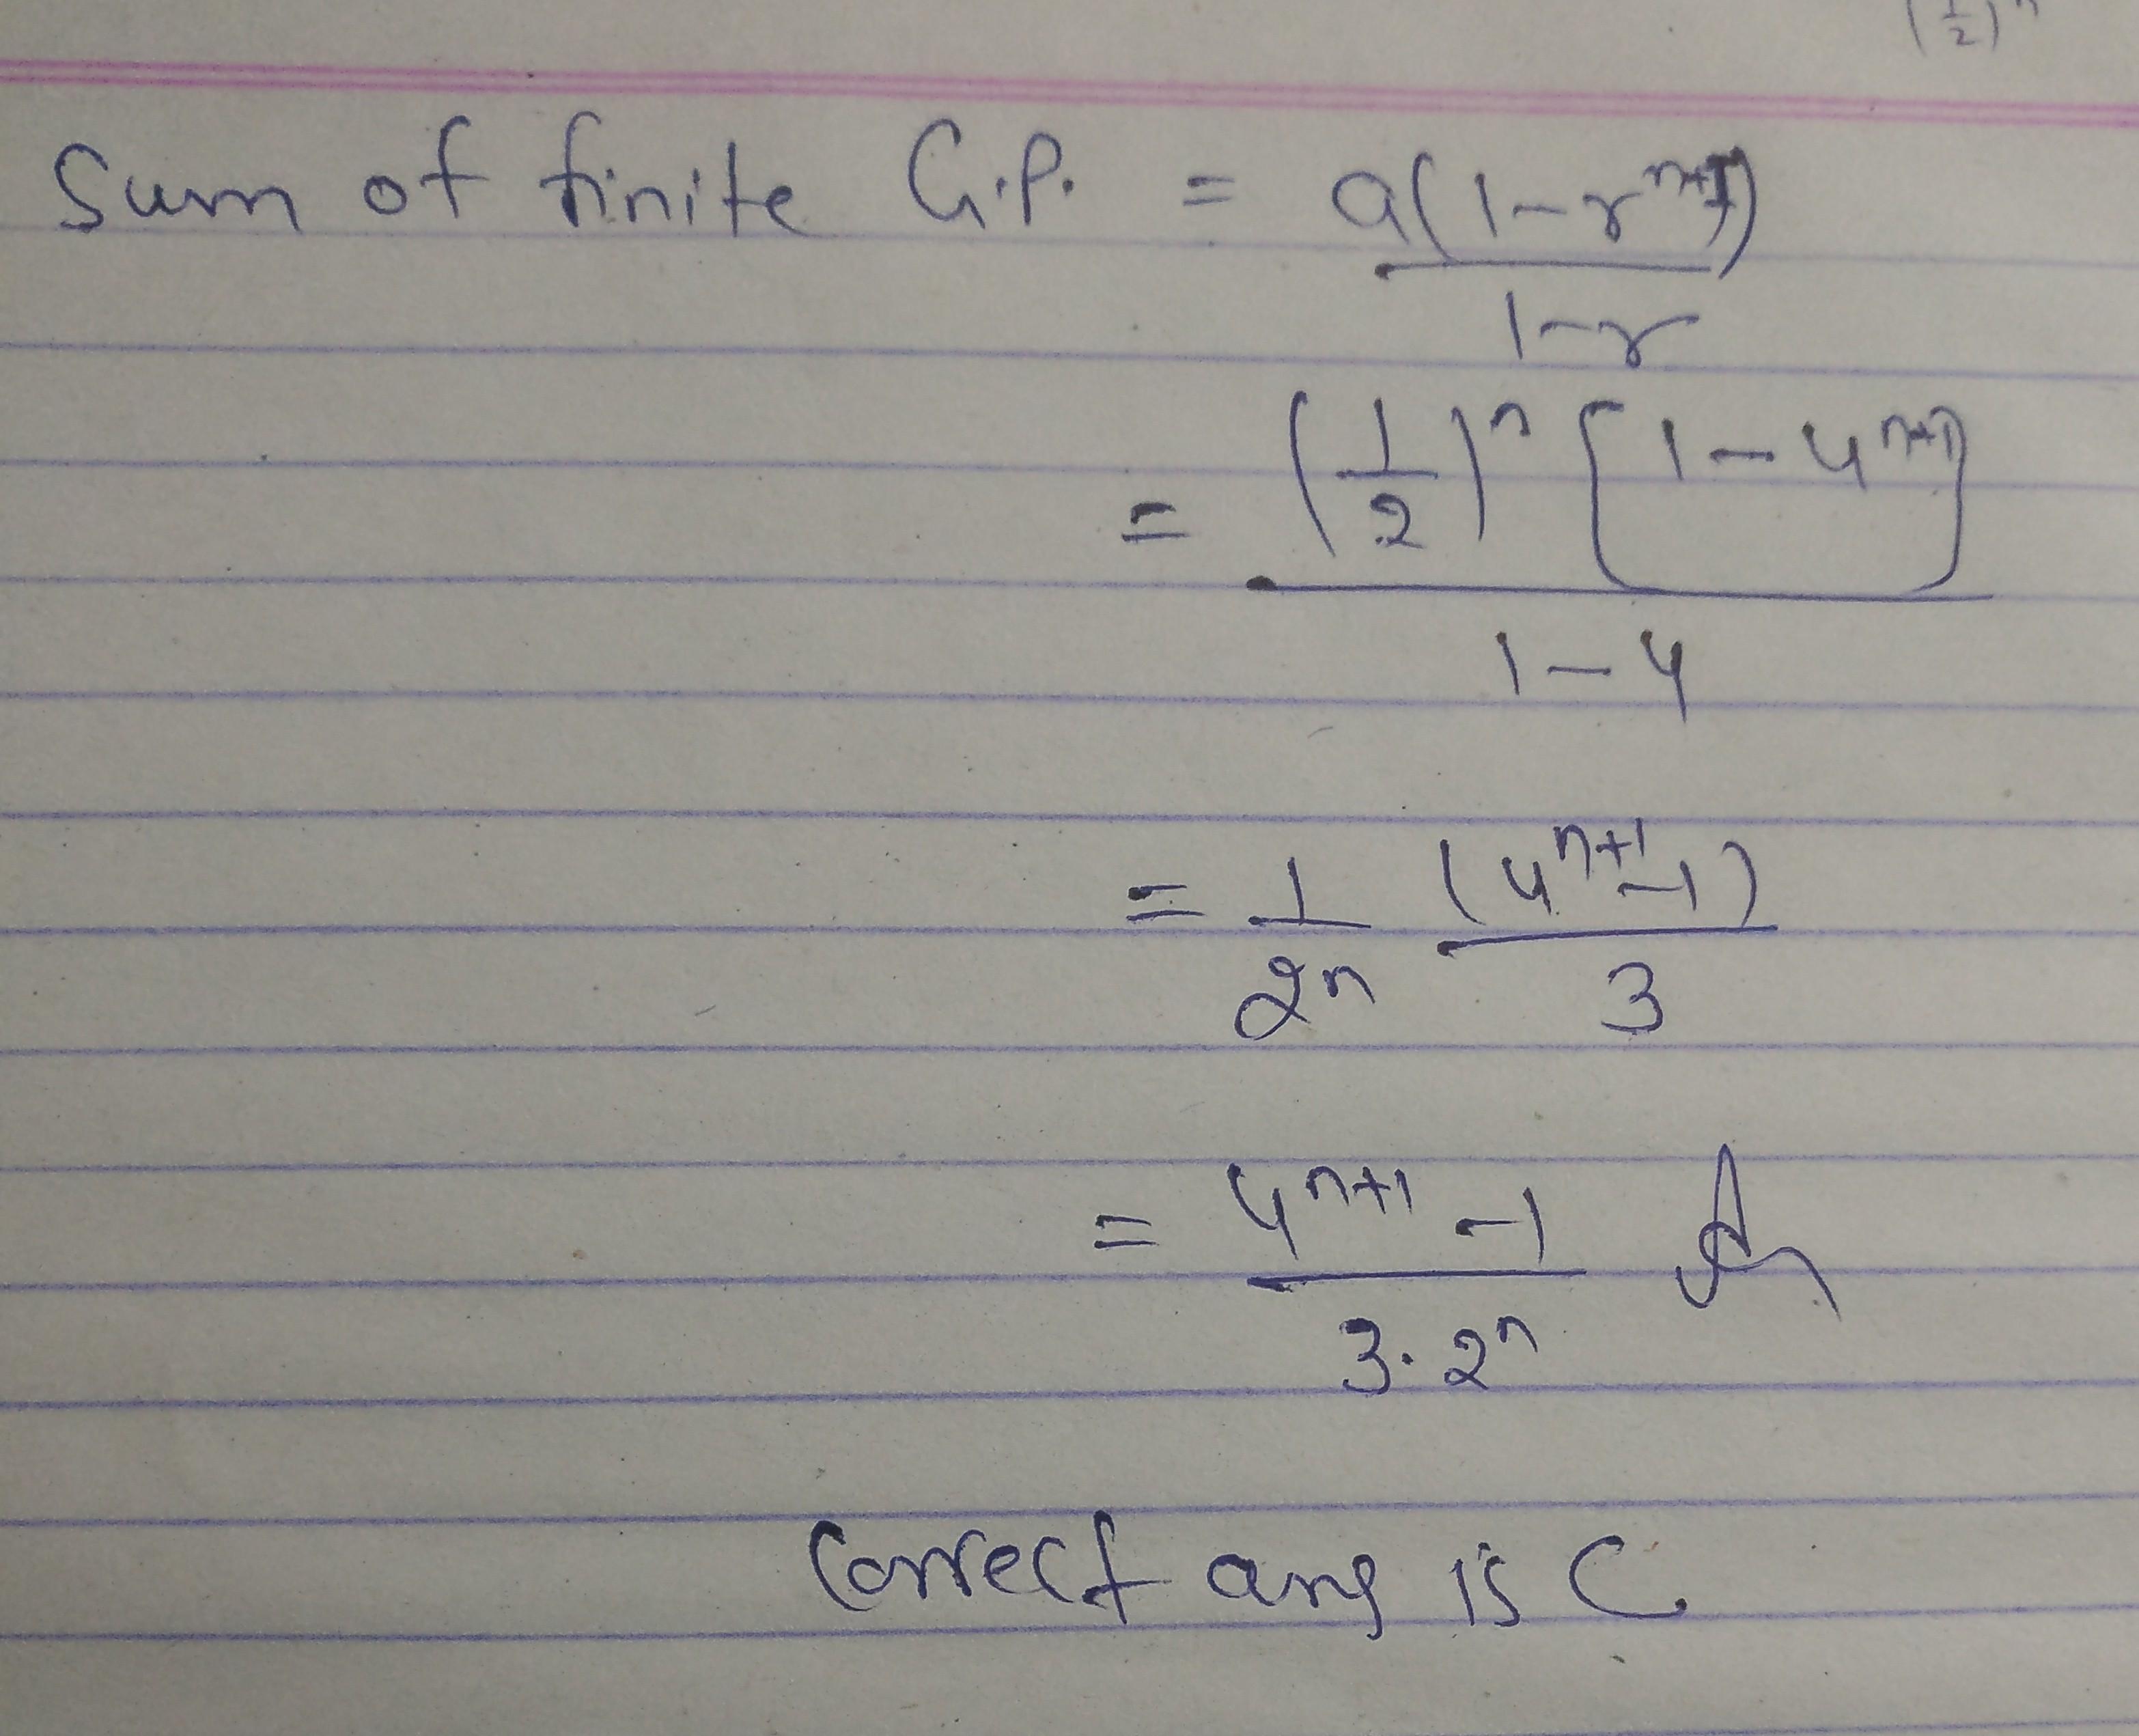 (1/2)^n
Sum of finite G.P. = a(1-r^(n+1))/(1-r)
= (1/2)^n [1-4^(n+1)]/(1-4)
= 1/2^n (4^(n+1)-1)/3
= (4^(n+1)-1)/(3·2^n)
Correct ans is C